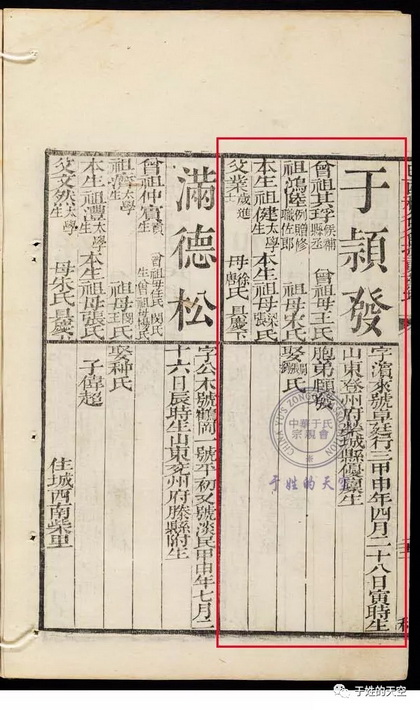 于穎發
曾祖其琈候補縣丞
曾祖母王氏
祖鴻陸例贈修職佐郎
祖母宋氏
本生祖健太學生
本生祖母梁氏張氏
父業歲進士
母徐氏唐氏
具慶下
字濱來號卓廷行三甲申年四月二十八日寅時生
山東登州府榮城縣優廩生
胞弟願發
娶氏
滿德松
曾祖仲賓
祖太學生
祖母閔氏
本生祖灃太學生
本生祖母張氏
父文然太學生
母朱氏
具慶下
字公木號鶴岡一號平初又號淡民甲申年七月二
十六日辰時生山東兗州府滕縣附生
娶种氏
子偉超
住城西南柴里
中華于氏宗親會
于姓的天空
于姓的天空